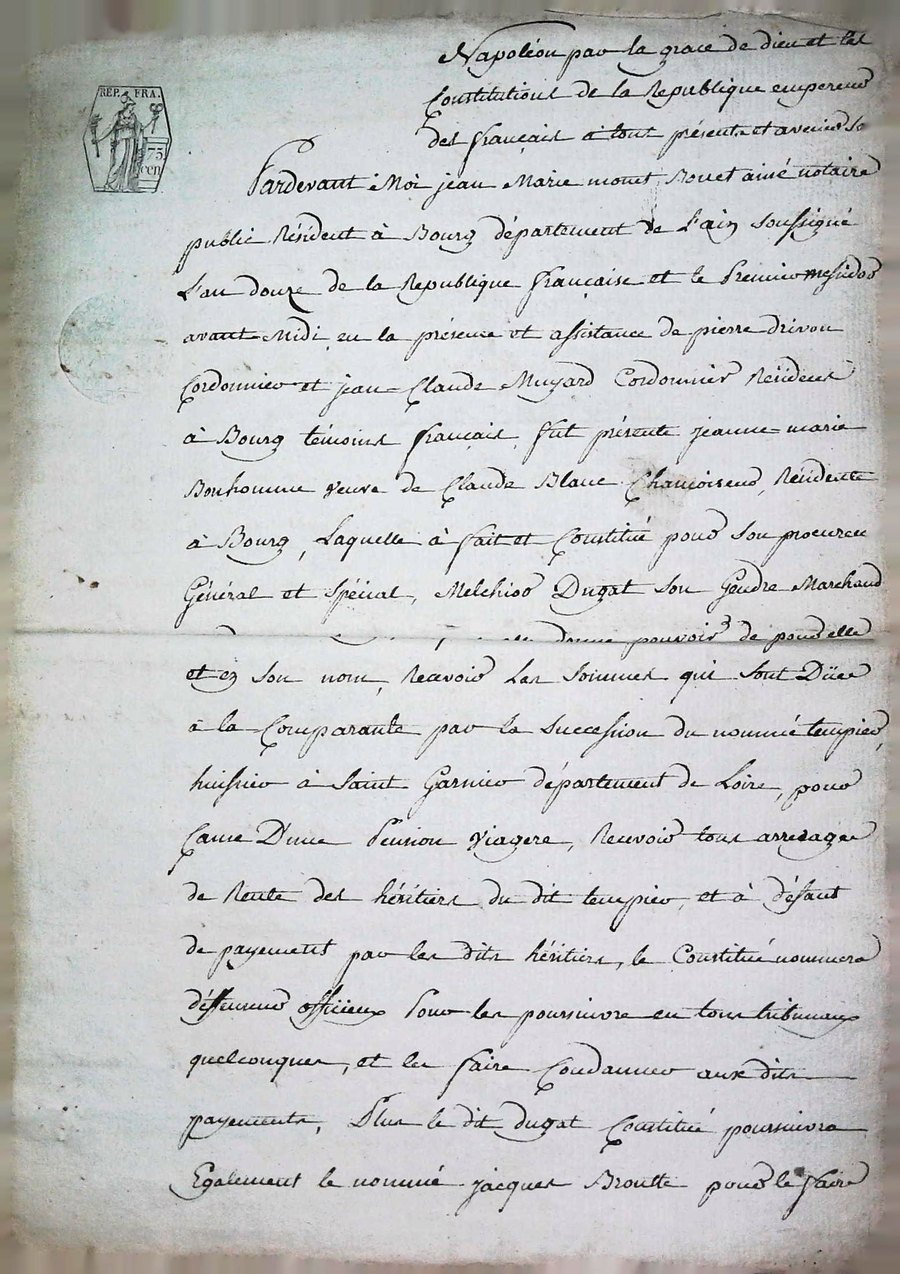 REP. FRA.
75
cen
Napoléon par la grace de dieu et les
Constitutions de la Republique empereur
des français à tout présents et avenir
Pardevant Moi jean Marie monet Bouet ainé notaire
public Résident à Bourg département de L'ain soussigné
L'an douze de la Republique française et le Premier messidor
avant midi, en la présence et assistance de pierre drivon
Cordonnier et jean Claude Mugard Cordonnier Résident
à Bourg témoins français, fut présente jeanne marie
Bonhomme veuve de Claude Blanc Chamoiseur, Résidente
à Bourg, Laquelle à fait et Constitué pour son procureu
Général et spécial, Melchior Dugat son Gendre Marchand
donne pouvoir de pour elle
et en son nom, Recevoir Les sommes qui sont Düee
à la Comparante par la Succession du nommé tempier,
huissier à Saint Garnier département de Loire, pour
Cause D'une Pension Viagere, Recevoir tous arrerages
de Rente des héritiers du dit tempier, et à défaut
de payement par les dits héritiers, le Constitué nommera
déffenseur officieux Pour les poursuivre en tous tribunaux
quelconques, et les faire Condamner aux dits
payements, Plus le dit dugat Constitué poursuivra
Egalement le nommé jacques Broutte pour le faire